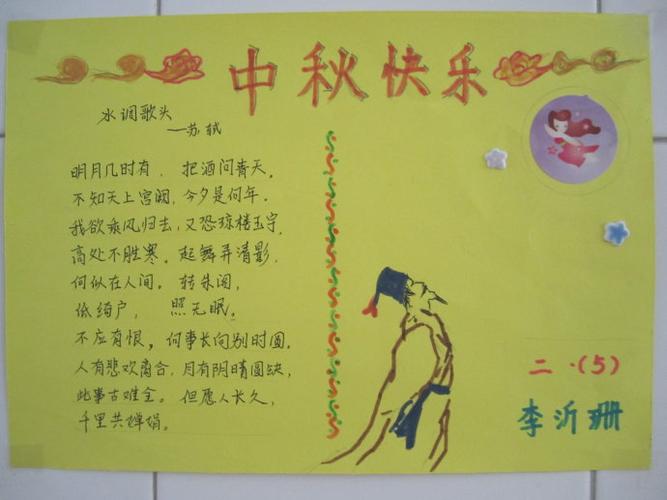 中秋快乐
水调歌头
—苏轼
明月几时有，把酒问青天。
不知天上宫阙，今夕是何年。
我欲乘风归去，又恐琼楼玉宇，
高处不胜寒。起舞弄清影，
何似在人间。转朱阁，
低绮户，照无眠。
不应有恨，何事长向别时圆，
人有悲欢离合，月有阴晴圆缺，
此事古难全。但愿人长久，
千里共婵娟。
二·(5)
李沂珊